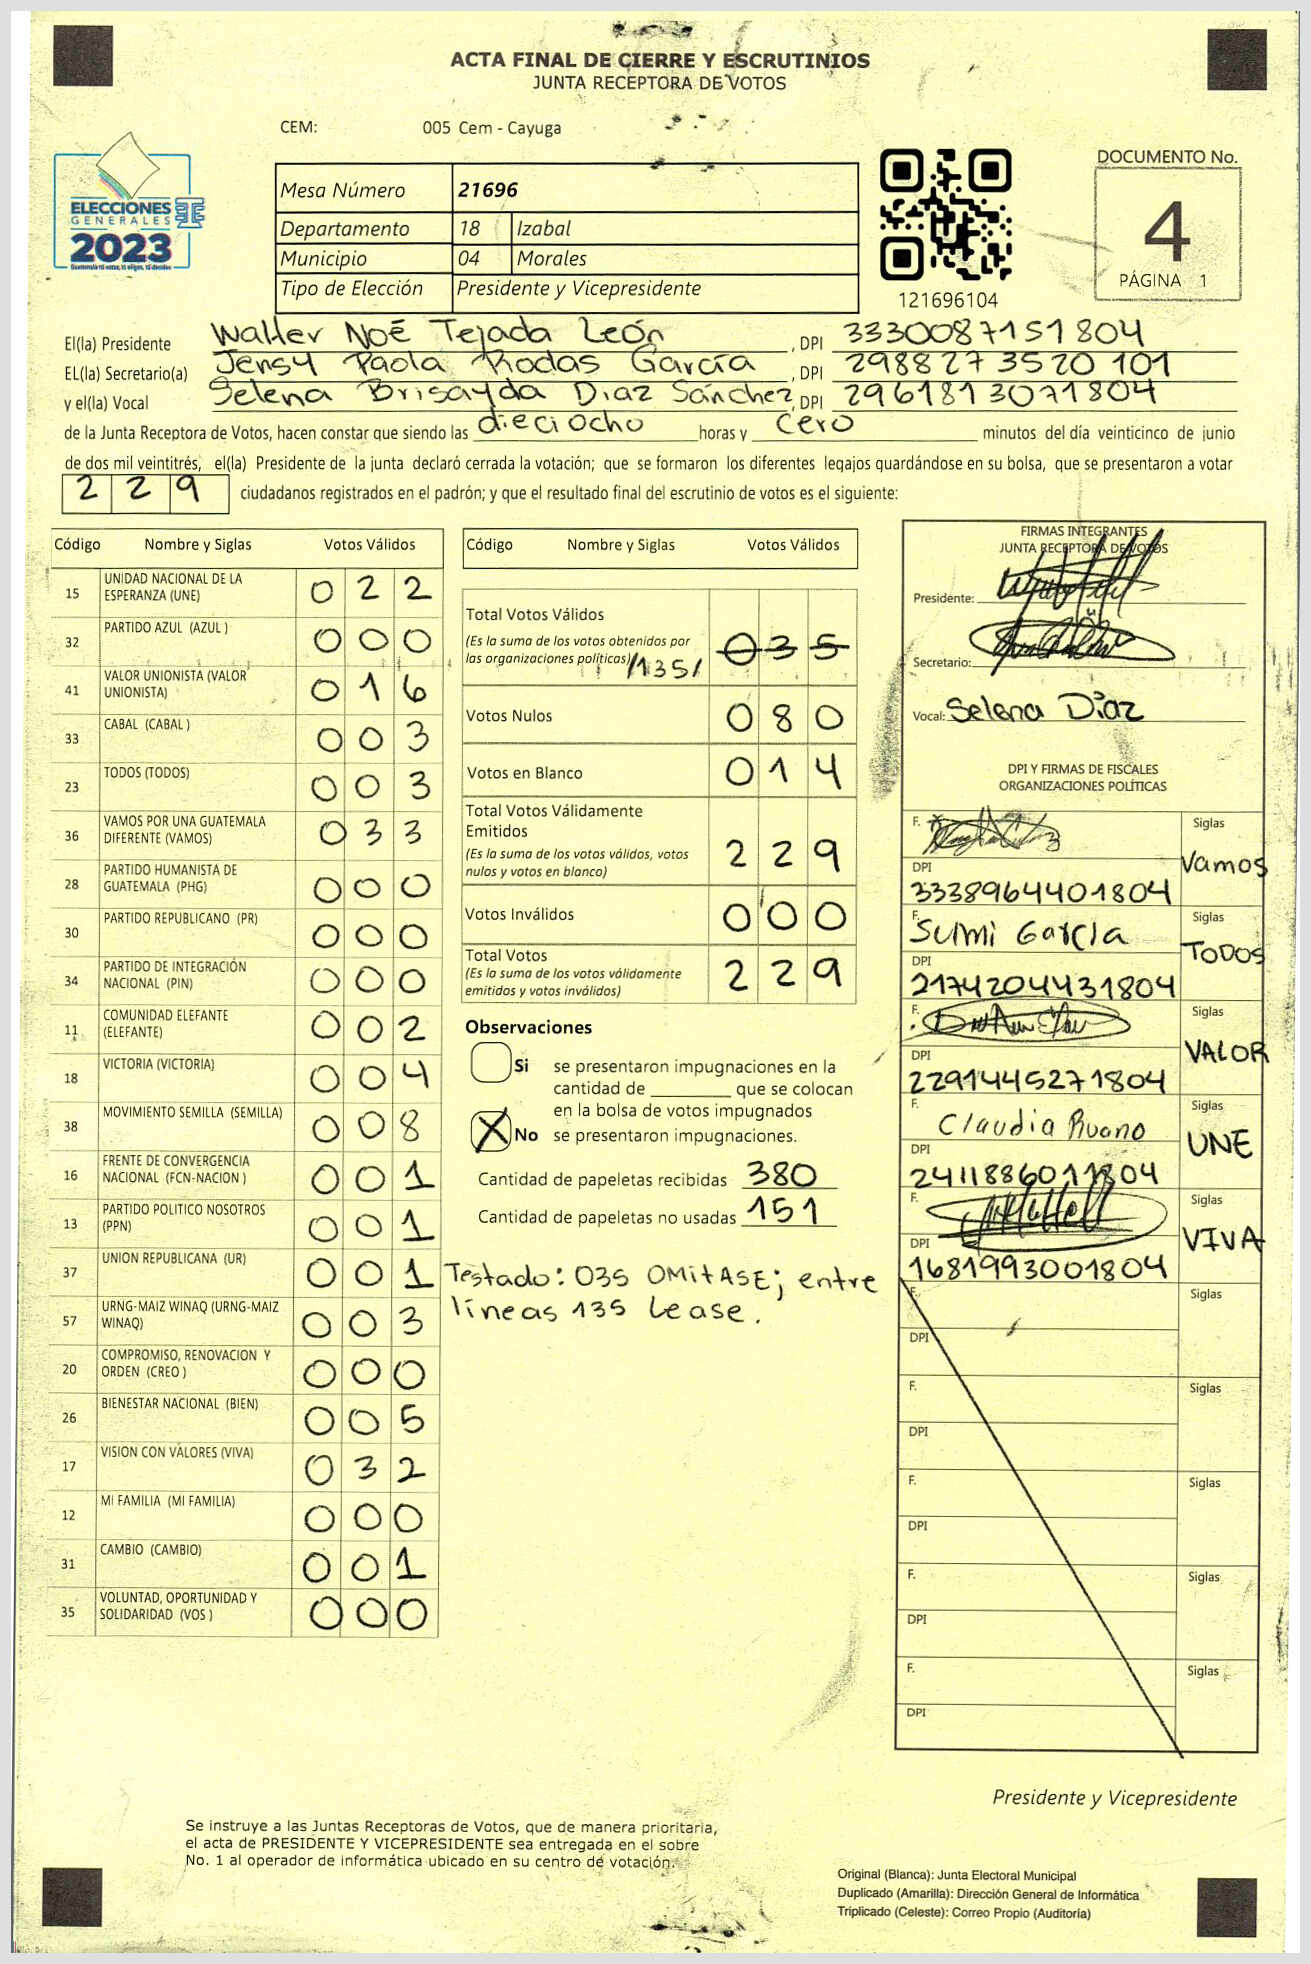 ACTA FINAL DE CIERRE Y ESCRUTINIOS
JUNTA RECEPTORA DE VOTOS
CEM: 005 Cem - Cayuga
ELECCIONES
GENERALES
2023
Mesa Número 21696
Departamento 18 Izabal
Municipio 04 Morales
Tipo de Elección Presidente y Vicepresidente
121696104
DOCUMENTO No.
4
PÁGINA 1
El(la) Presidente Walter Noé Tejada León, DPI 3330087151804
EL(la) Secretario(a) Jensy Paola Rodas García, DPI 2988273520101
y el(la) Vocal Selena Brisayda Diaz Sánchez, DPI 2961813071804
de la Junta Receptora de Votos, hacen constar que siendo las dieciocho horas y cero minutos del día veinticinco de junio
de dos mil veintitrés, el(la) Presidente de la junta declaró cerrada la votación; que se formaron los diferentes legajos guardándose en su bolsa, que se presentaron a votar
229 ciudadanos registrados en el padrón; y que el resultado final del escrutinio de votos es el siguiente:
Código Nombre y Siglas Votos Válidos
15 UNIDAD NACIONAL DE LA ESPERANZA (UNE) 022
32 PARTIDO AZUL (AZUL ) 000
41 VALOR UNIONISTA (VALOR UNIONISTA) 016
33 CABAL (CABAL ) 003
23 TODOS (TODOS) 003
36 VAMOS POR UNA GUATEMALA DIFERENTE (VAMOS) 033
28 PARTIDO HUMANISTA DE GUATEMALA (PHG) 000
30 PARTIDO REPUBLICANO (PR) 000
34 PARTIDO DE INTEGRACIÓN NACIONAL (PIN) 000
11 COMUNIDAD ELEFANTE (ELEFANTE) 002
18 VICTORIA (VICTORIA) 004
38 MOVIMIENTO SEMILLA (SEMILLA) 008
16 FRENTE DE CONVERGENCIA NACIONAL (FCN-NACION ) 001
13 PARTIDO POLITICO NOSOTROS (PPN) 001
37 UNION REPUBLICANA (UR) 001
57 URNG-MAIZ WINAQ (URNG-MAIZ WINAQ) 003
20 COMPROMISO, RENOVACION Y ORDEN (CREO ) 000
26 BIENESTAR NACIONAL (BIEN) 005
17 VISION CON VALORES (VIVA) 032
12 MI FAMILIA (MI FAMILIA) 000
31 CAMBIO (CAMBIO) 001
35 VOLUNTAD, OPORTUNIDAD Y SOLIDARIDAD (VOS ) 000
Código Nombre y Siglas Votos Válidos
Total Votos Válidos
(Es la suma de los votos obtenidos por
las organizaciones políticas) /135/ 035
Votos Nulos 080
Votos en Blanco 014
Total Votos Válidamente
Emitidos
(Es la suma de los votos válidos, votos
nulos y votos en blanco) 229
Votos Inválidos 000
Total Votos
(Es la suma de los votos válidamente
emitidos y votos inválidos) 229
Observaciones
Si se presentaron impugnaciones en la
cantidad de ________ que se colocan
en la bolsa de votos impugnados
X No se presentaron impugnaciones.
Cantidad de papeletas recibidas 380
Cantidad de papeletas no usadas 151
Testado: 035 OMitASE; entre
líneas 135 Lease.
FIRMAS INTEGRANTES
JUNTA RECEPTORA DE VOTOS
Presidente:
Secretario:
Vocal: Selena Díaz
DPI Y FIRMAS DE FISCALES
ORGANIZACIONES POLÍTICAS
F. Siglas
Vamos
DPI
3338964401804
F. Sumi García Siglas
TODOS
DPI
2174204431804
F. Siglas
VALOR
DPI
2291445271804
F. Claudia Ruano Siglas
UNE
DPI
2411886011804
F. Siglas
VIVA
DPI
1681993001804
F. Siglas
DPI
F. Siglas
DPI
F. Siglas
DPI
F. Siglas
DPI
F. Siglas
DPI
Presidente y Vicepresidente
Se instruye a las Juntas Receptoras de Votos, que de manera prioritaria,
el acta de PRESIDENTE Y VICEPRESIDENTE sea entregada en el sobre
No. 1 al operador de informática ubicado en su centro de votación.
Original (Blanca): Junta Electoral Municipal
Duplicado (Amarilla): Dirección General de Informática
Triplicado (Celeste): Correo Propio (Auditoría)